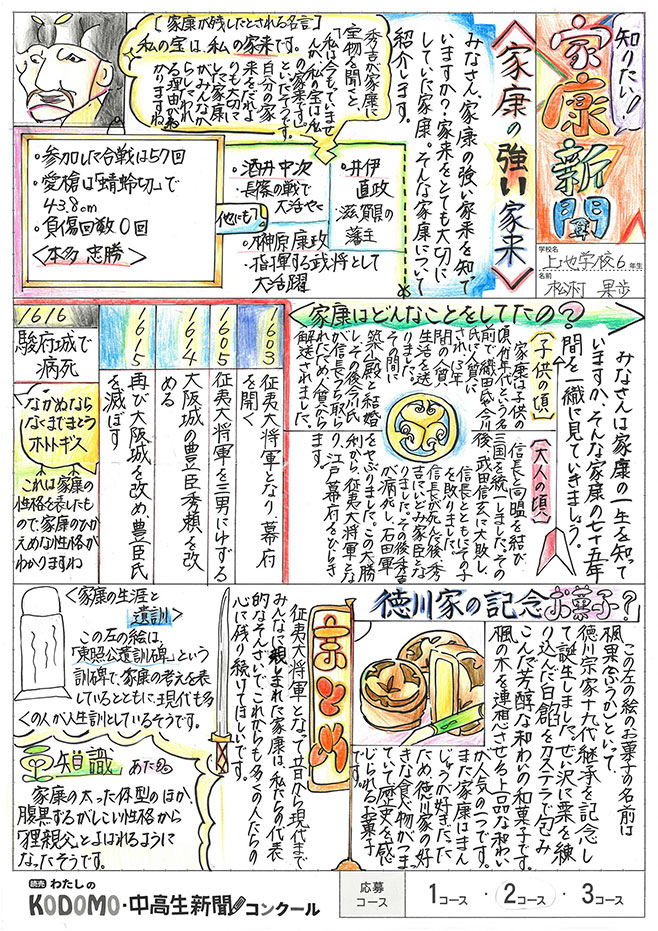 知りたい！
家康新聞
学校名
上地学校6年生
名前
松村 果歩
〈家康の強い家来〉
みなさん、家康の強い家来を知って
いますか？家来をとても大切に
していた家康。そんな家康について
紹介します。
［家康が残したとされる名言］
私の宝は、私の家来です。
秀吉が家康に
宝物を聞くと、
・井伊
直政
滋賀県の
藩主
・酒井忠次
・長篠の戦で
大活やく
・榊原康政
・指揮する武将として
大活躍
他にも！
・参加した合戦は57回
・愛槍は「蜻蛉切」で
43.8cm
・負傷回数0回
〈本多 忠勝〉
家康はどんなことをしてたの？
みなさんは家康の一生を知って
いますか、そんな家康の七十五年
間を一織に見ていきましょう。
〔子供の頃〕
家康は子供の
頃、竹千代という名
前で織田氏、今川
氏に人質に
され、13年
間の人質
生活を送
りました。
その間に
築山殿と結婚
し、その後今川氏
が信長にうち取ら
れたため人質から
解送されました。
〔大人の頃〕
信長と同盟を結び
三国を統一しました。その
後、武田信玄に大敗し
信長とともにその子
を敗りました。
信長が死んだ後、秀
吉にいどみ家臣とな
りました。その後秀吉
が病死し、石田軍
をやぶりました。この大勝
利から、征夷大将軍とな
り、江戸幕府をひらき
ます。
1603
征夷大将軍となり、幕府
を開く
1605
征夷大将軍を三男にゆずる
1614
大阪城の豊臣秀頼を攻
める
1615
再び大阪城を攻め、豊臣氏
を滅ぼす
1616
駿府城で
病死
なかぬなら
なくまでまとう
ホトトギス
これは家康の
性格を表したも
ので、家康のひか
えめな性格が
わかりますね
徳川家の記念お菓子？
この左の絵のお菓子の名前は
楓菓(ふうか)といって、
徳川宗家十九代継承を記念し
て誕生しました。ぜい沢に栗を練
り込んだ白餡をカステラで包み
こんだ芳醇な和わいの和菓子です。
楓の木を連想させる上品な和わい
が人気の一つです。
また家康はまん
じゅうが好きだった
ため徳川家の好
きな食べ物がつまっ
ていて歴史を感
じられるお菓子
です。
まとめ
征夷大将軍となって昔から現代まで
みんなに親しまれた家康は、私たちの代表
的なそんざいで、これからも多くの人たちの
心に残り続けてほしいです。
〈家康の生涯と
遺訓〉
この左の絵は、
「東照公遺訓碑」という
訓碑で、家康の考えを表
しているとともに、現代も多
くの人が人生訓としているそうです。
豆知識 あだ名
家康の太った体型のほか、
腹黒するがしこい性格から
「狸親父」とよばれるように
なったそうです。
読売 わたしの
KODOMO・中高生新聞コンクール
応募
コース
1コース・2コース・3コース